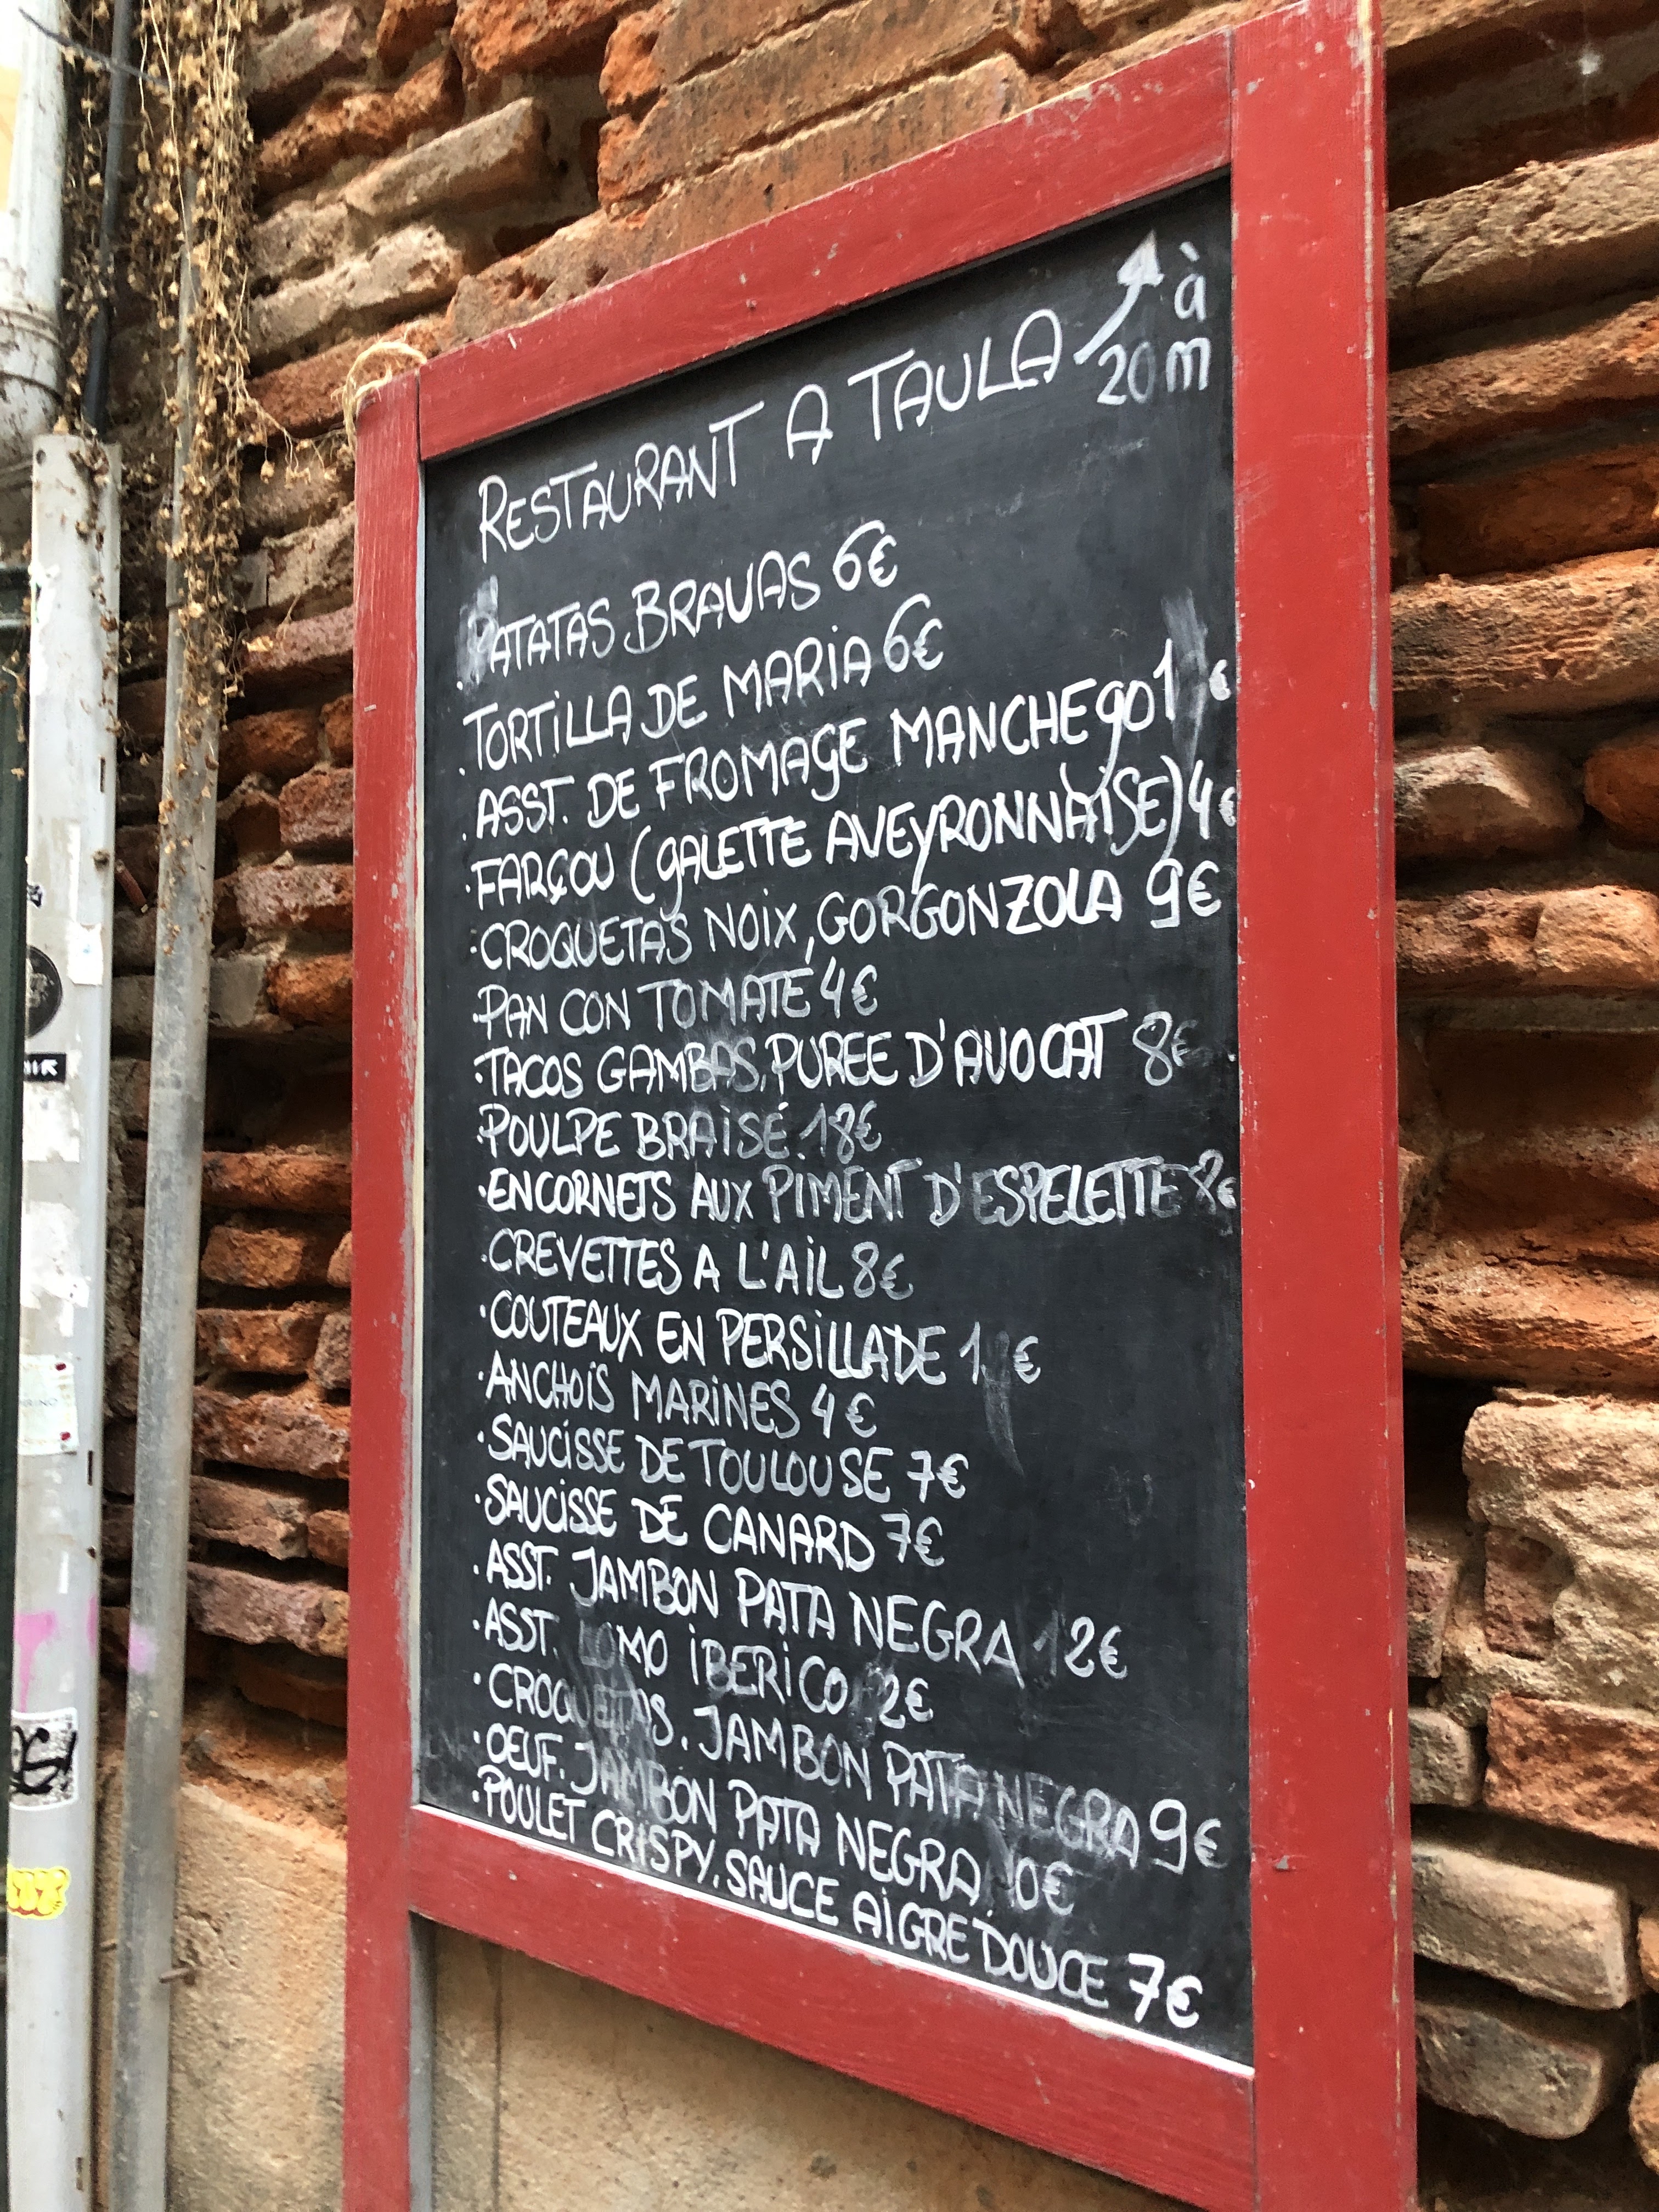 RESTAURANT A TAULA à
20 m
PATATAS BRAVAS 6€
. TORTILLA DE MARIA 6€
. ASST. DE FROMAGE MANCHEGO 1 €
. FARÇOU (GALETTE AVEYRONNAISE) 4€
. CROQUETAS NOIX, GORGONZOLA 9€
. PAN CON TOMATE 4€
. TACOS GAMBAS, PUREE D'AVOCAT 8€
. POULPE BRAISÉ. 18€
. ENCORNETS AUX PIMENT D'ESPELETTE 8€
. CREVETTES A L'AIL 8€
. COUTEAUX EN PERSILLADE 1 €
. ANCHOIS MARINES 4€
. SAUCISSE DE TOULOUSE 7€
. SAUCISSE DE CANARD 7€
. ASST. JAMBON PATA NEGRA 12€
. ASST. LOMO IBERICO 2€
. CROQUETAS. JAMBON PATA NEGRA 9€
. OEUF. JAMBON PATA NEGRA 0€
. POULET CRISPY. SAUCE AIGRE DOUCE 7€